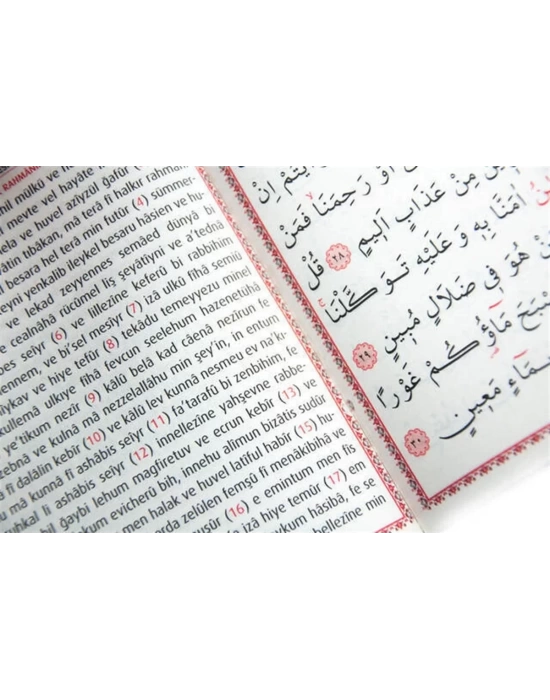 RAHMAN
mil mülkü ve h
l meyte vel hayâte
ela ve huvel azîyzül gafûr
vâtin tıbâkan, mâ terâ fî halkır rahmân
l besara hel terâ min futûr (4) sümmer-
teyni yenkalib ileykel besaru hâsien ve hu-
ve lekad zeyyennes semâed dünyâ bi
ve cealnâhâ rücûmel liş şeyâtiyni ve a'tednâ
bes seiyr (6) ve lillezîne keferû bi rabbihim
ennem, ve bi'sel mesîyr (7) izâ ulkû fîhâ semiû
hîykav ve hiye tefûr (8) tekâdu temeyyezu minel
kullemâ ulkıye fîhâ fevcun seelehum hazenetühâ
e'tikum nezîr (9) kâlû belâ kad câenâ nezîrun fe
zebnâ ve kulnâ mâ nezzelallâhu min şey'in, in entum
â fî dalâlin kebîr (10) ve kâlû lev kunnâ nesmeu ev na'k-
mâ kunnâ fî ashâbis seiyr (11) fa'terafû bi zenbihim, fe
uhkal li ashâbis seiyr (12) innellezîne yahşevne rabbe-
bil ğaybi lehum magfiretuv ve ecrun kebîr (13) ve
kum evicherû bih, innehu alîmun bizâtis sudûr
men halak ve huvel latîful habîr (15) hu-
arda zelûlen femşû fî menâkibihâ ve
nuşûr (16) e emintum men fis
e izâ hiye temûr (17) em
aykum hâsibâ, fe se
bellezîne min
يْتُمْ اِنْ
اَوْ رَحِمَنَا فَمَنْ
مِنْ عَذَابٍ اَلِيمٍ ٢٨ قُلْ
اٰمَنَّا بِهِ وَ عَلَيْهِ تَوَكَّلْنَا
مَنْ هُوَ فِى ضَلَالٍ مُبِينٍ ٢٩
صْبَحَ مَاؤُكُمْ غَوْرًا
بِمَاءٍ مَعِينٍ ٣٠